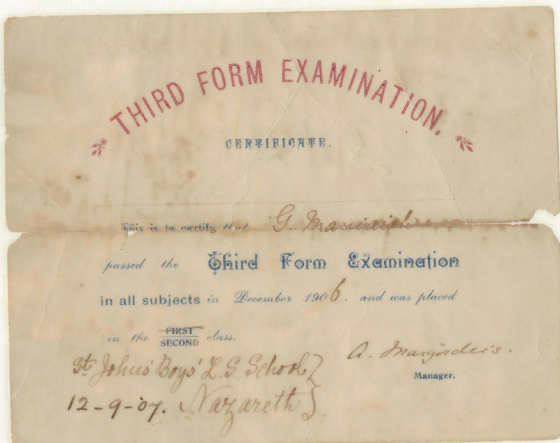 THIRD FORM EXAMINATION.
CERTIFICATE.
This is to certify that G.
passed the Third Form Examination
in all subjects in December 1906. and was placed
in the FIRST SECOND class.
St. Johns' Boys' L.S. School
12-9-07. Nazareth
A.
Manager.